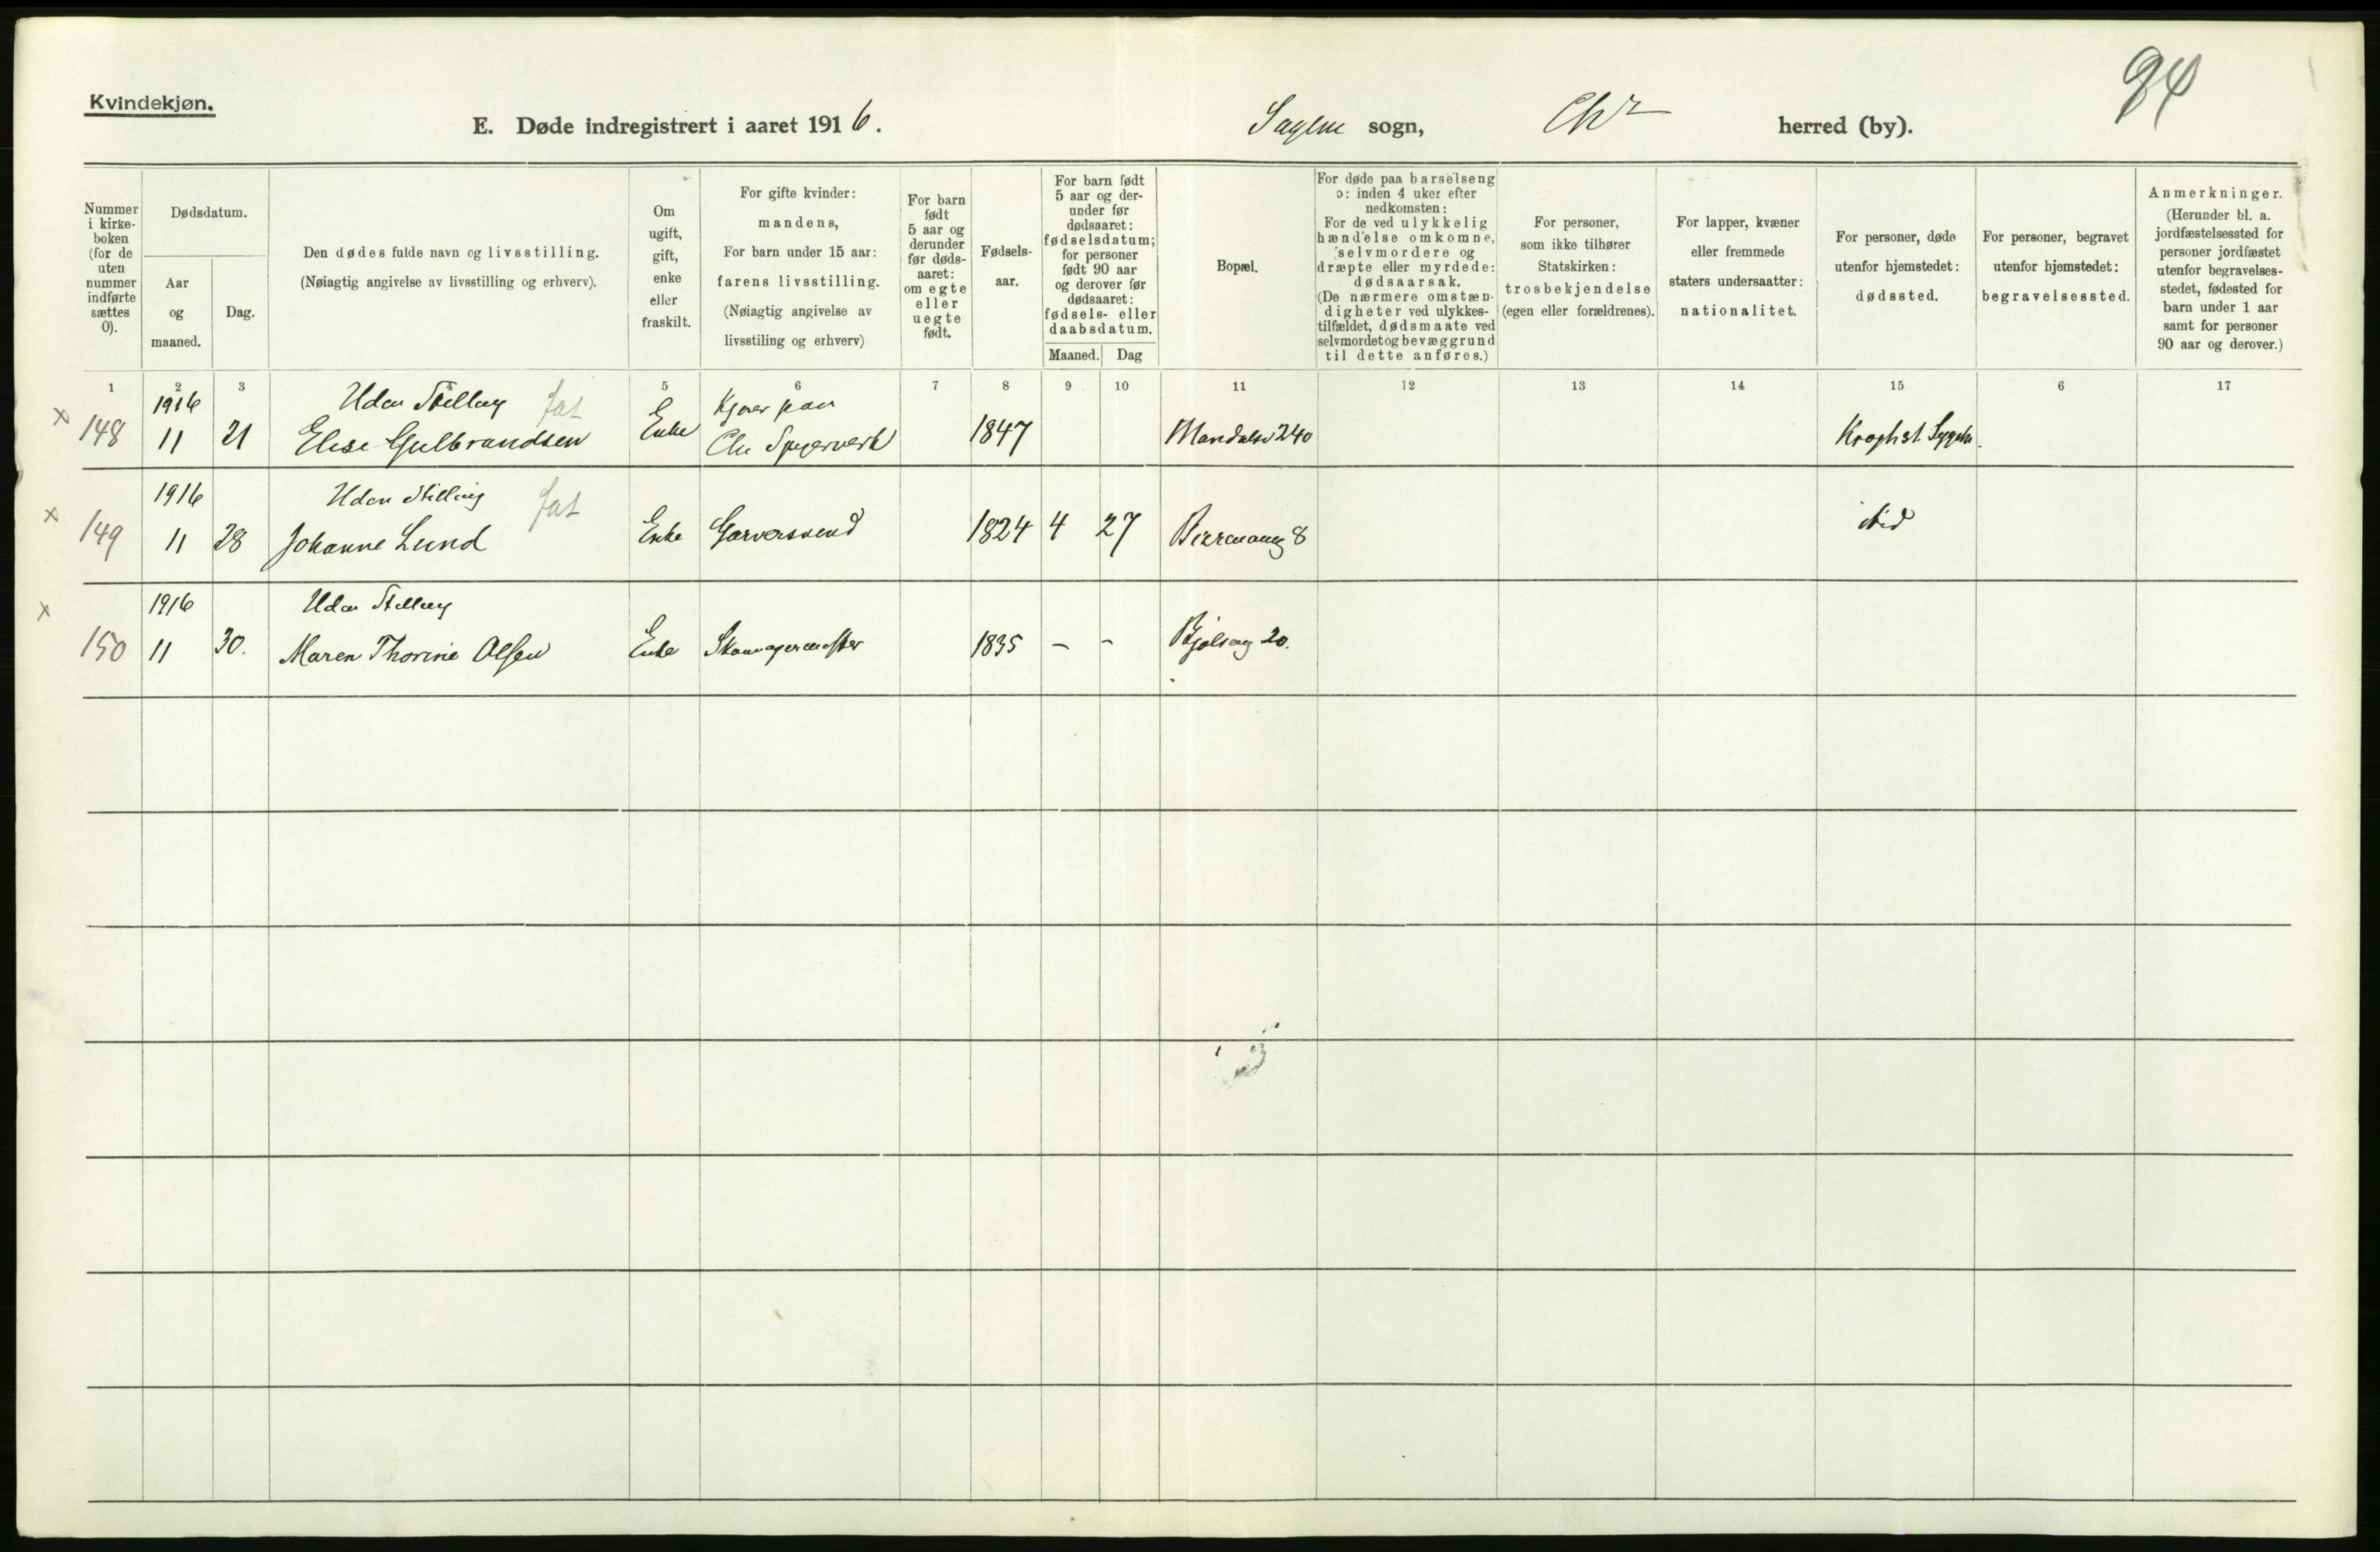 94
Kvindekjøn.
E. Døde indregistrert i aaret 1916.
Sagene sogn,
Chra
herred (by).
Nummer
i kirke-
boken
(for de
uten
nummer
indførte
sættes
0).
Dødsdatum.
Aar
og
maaned.
Dag.
Den dødes fulde navn og livsstilling.
(Nøiagtig angivelse av livsstilling og erhverv).
Om
ugift,
gift,
enke
eller
fraskilt.
For gifte kvinder:
mandens,
For barn under 15 aar:
farens livsstilling.
(Nøiagtig angivelse av
livsstiling og erhverv)
For barn
født
5 aar og
derunder
før døds-
aaret:
om egte
eller
uegte
født.
Fødsels-
aar.
For barn født
5 aar og der-
under før
dødsaaret:
fødselsdatum;
for personer
født 90 aar
og derover før
dødsaaret:
fødsels- eller
daabsdatum.
Maaned.
Dag
Bopæl.
For døde paa barselseng
ɔ: inden 4 uker efter
nedkomsten:
For de ved ulykkelig
hændelse omkomne,
selvmordere og
dræpte eller myrdede:
dødsaarsak.
(De nærmere omstæn-
digheter ved ulykkes-
tilfældet, dødsmaate ved
selvmordet og bevæggrund
til dette anføres.)
For personer,
som ikke tilhører
Statskirken:
trosbekjendelse
(egen eller forældrenes).
For lapper, kvæner
eller fremmede
staters undersaatter:
nationalitet.
For personer, døde
utenfor hjemstedet:
dødssted.
For personer, begravet
utenfor hjemstedet:
begravelsessted.
Anmerkninger.
(Herunder bl. a.
jordfæstelsessted for
personer jordfæstet
utenfor begravelses-
stedet, fødested for
barn under 1 aar
samt for personer
90 aar og derover.)
1 2 3 4 5 6 7 8 9 10 11 12 13 14 15 6 17
1916 Uden Stilling fat
x 148 11 21 Elise Gulbrandsen Enke 1847 Mandalsv 240 Kroghst. Sygeh.
1916 Uden Stilling fat
x 149 11 28 Johanne Lund Enke Garversvend 1824 4 27 8 ibid
1916 Uden Stilling
x 150 11 30. Maren Thorine Olsen Enke Skomagermester 1835 – – Bjølseng 20.